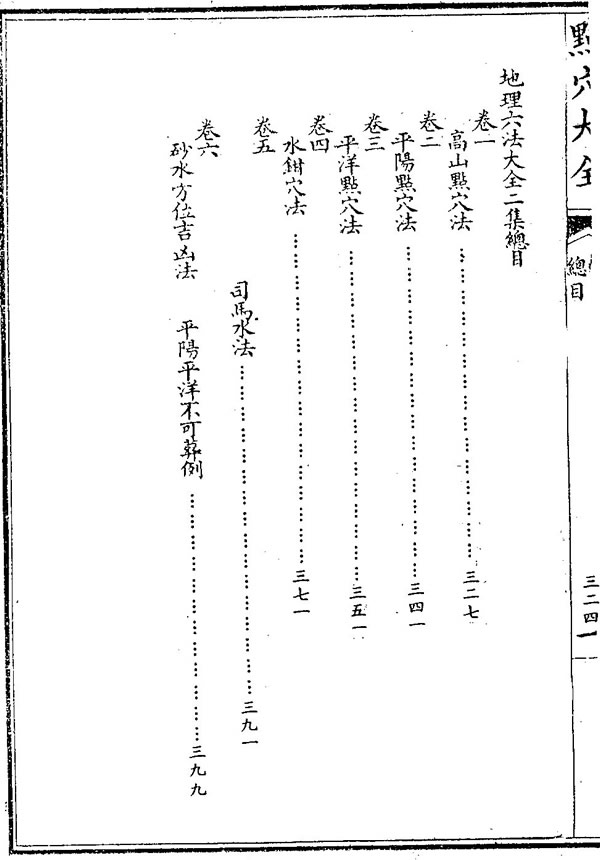 點穴大全
總目
三二四
地理六法大全二集總目
卷一
高山點穴法 三二七
卷二
平陽點穴法 三四一
卷三
平洋點穴法 三五一
卷四
水鉗穴法 三七一
卷五
司馬水法 三九一
卷六
砂水方位吉凶法 平陽平洋不可葬例 三九九